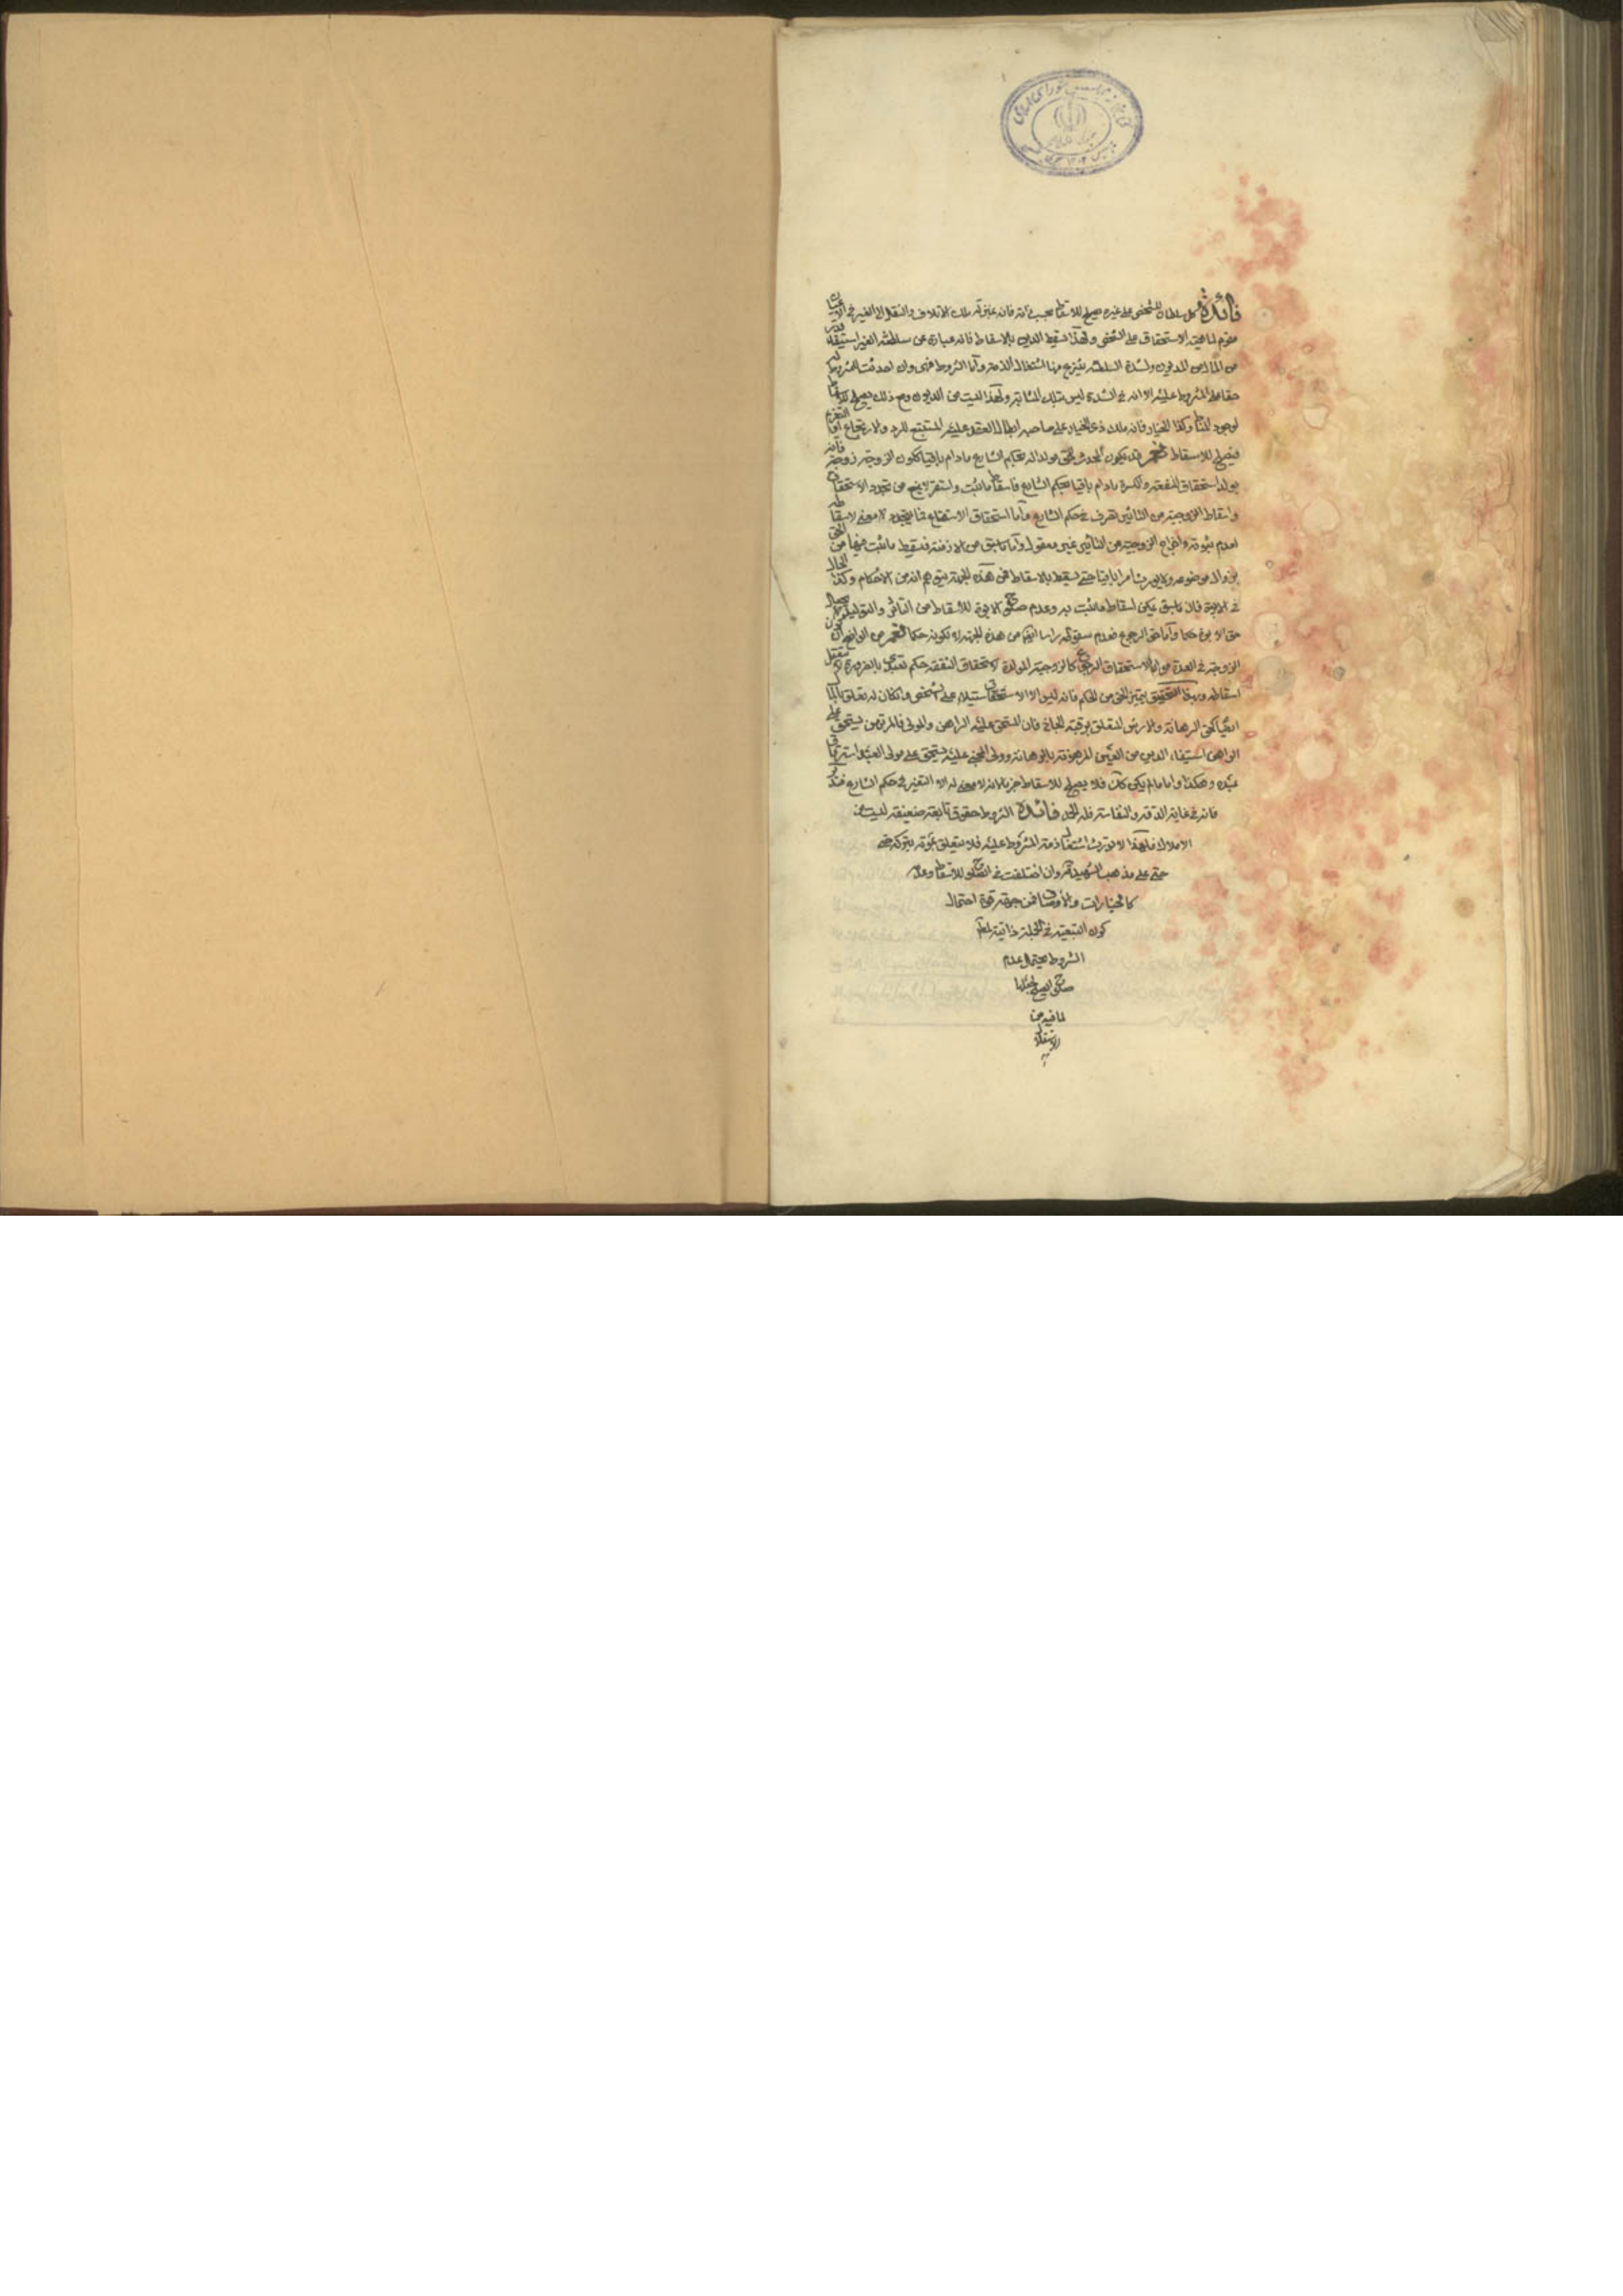 فائدة كل سلطان للشخص على غيره يصلح للاسقاط بحسب ذاته فانه بمنزلة ملك الاتلاف والنقل الى الغير في الاعيان
مقوم لماهية الاستحقاق على الشخص ولهذا يسقط الدين بالاسقاط فانه عبارة عن سلطنة الغير استيفاء قدر
من المال من المديون ولشدة السلطنة ينتزع منها اشتغال الذمة وأما الشروط فهي وان احدثت للمشروط له
حقا على المشروط عليه الا انه في الشدة ليس بتلك المثابة ولهذا ليست من الديون ومع ذلك يصلح للاسقاط
لوجود المناط وكذا الخيار فانه ملك ذي الخيار على صاحبه ابطال العقد عليه المستتبع للرد والارتجاع او التغريم
فيصلح للاسقاط نعم قد يكون لحدوث الحق مولد اله بحكم الشارع مادام باقيا ككون الزوجة زوجة فانه
يولد استحقاق النفقة والكسوة مادام باقيا بحكم الشارع فاسقاط ماثبت واستقر لا يمنع من تجدد الاستحقاق
واسقاط الزوجية من التأثير تصرف في حكم الشارع وأما استحقاق الاستمتاع فما يتجدد لا معنى لاسقاطه
لعدم ثبوته واخراج الزوجية من التأثير غير معقول وأما ماسبق من الازمنة فيسقط ماثبت فيها من الحق
بزوال موضوعه ولا يورث امرا باقيا حتى يسقط بالاسقاط فمن هذه الجهة يتوهم انه من الاحكام وكذا الحال
في الابوة فان ماسبق يمكن اسقاط ماثبت به وعدم صلوح الابوة للاسقاط من التأثير والتوليد لا يجعل
حق الابوة حكما وأما حق الرجوع فعدم سقوطه راسا انما هو من هذه الجهة لا لكونه حكما فمن الواضح ان كون
الزوجية في العدة مولدا لاستحقاق الرجوع كالزوجية المولدة لاستحقاق النفقة حكم تعبدي بالضرورة لا يقبل
اسقاطه وبهذا التحقيق يتميز الحق من الحكم فانه ليس الا الاستحقاق استيلاء على شخص وان كان له تعلق بالمال
ايضا كحق الرهانة والارش المتعلق برقبة الجاني فان المستحق عليه الراهن والمولى فالمرتهن يستحق على
الراهن استيفاء الدين من العين المرهونة بالرهانة وولي المجني عليه يستحق على مولى العبد استرقاق
عبده وهكذا وأما مالم يكن كك فلا يصلح للاسقاط جزما لانه لا معنى له الا التغيير في حكم الشارع فتدبر
فانه في غاية الدقة والنفاسة فله الحمد فائدة الشروط حقوق تابعة ضعيفة ليست من
الاملاك فلهذا لا تورث اشتغال ذمة المشروط عليه فلا يتعلق بموته بتركته شيء
حتى على مذهب الشهيد قده وان اختلفت في الصلوح للاسقاط وعدمه
كالخيارات والاوصاف فمن جهة قوة احتمال
كون التبعية في الجملة ذاتية لها
الشروط يحتمل عدم
صلوح الصلح لجعلها
لما فيه من
الاستقلال